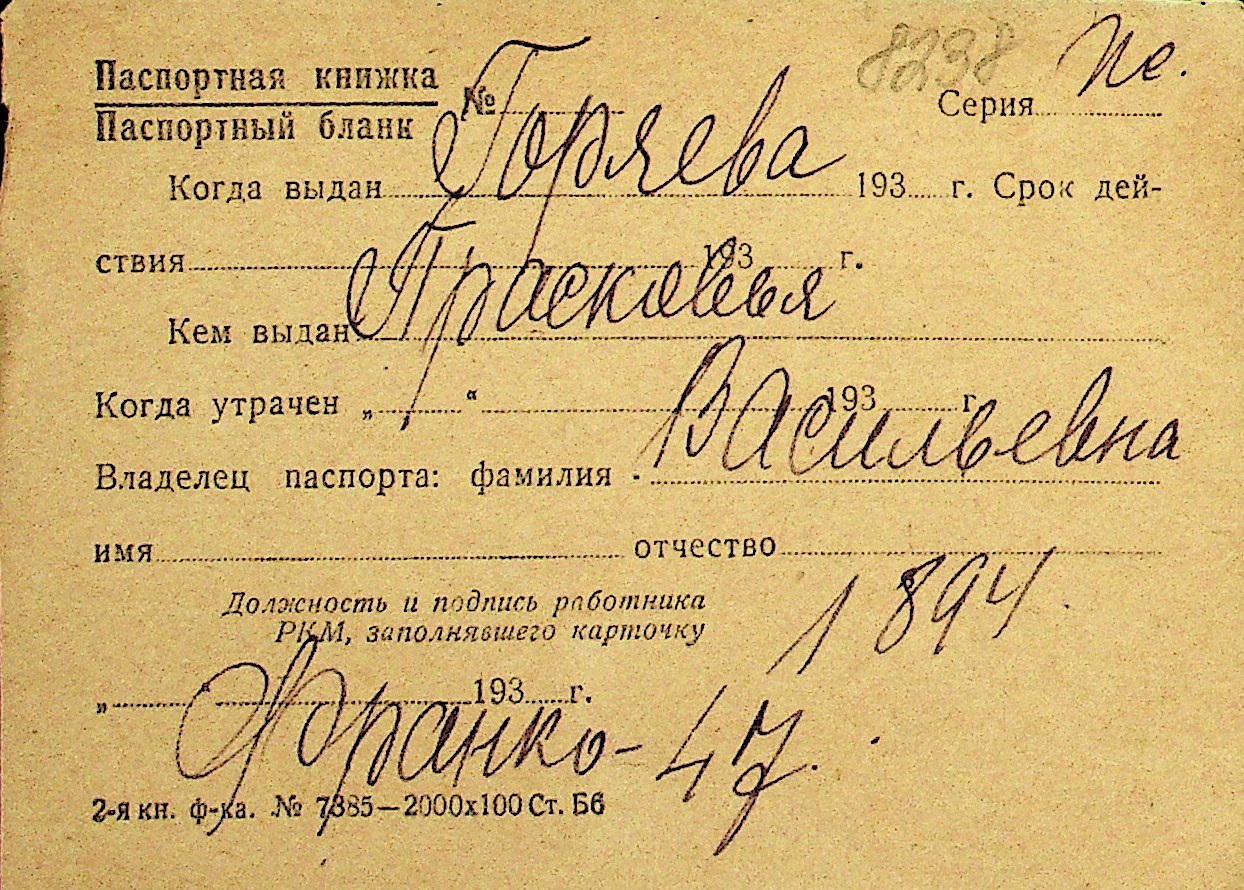 8298 Пе.
Паспортная книжка
Паспортный бланк № Серия
Горяева
Когда выдан 193 г. Срок дей-
ствия 193 г.
Прасковья
Кем выдан
Когда утрачен „ “ 193 г.
Васильевна
Владелец паспорта: фамилия
имя отчество
1894.
Должность и подпись работника
РКМ, заполнявшего карточку
„ “ 193 г.
Франко - 47.
2-я кн. ф-ка. № 7385—2000х100 Ст. Бб